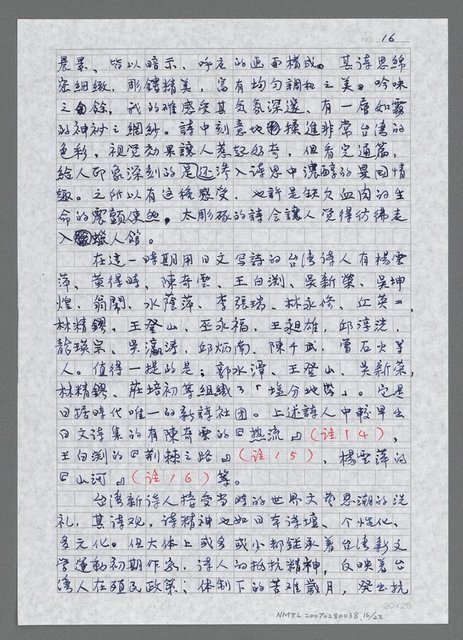 16
農景、皆以暗示、呼応的画面構成。其詩思綿
密細緻，彫鏤精美，富有均勻調和之美。吟味
之餘，我的確感受其気象深邃、有一層如霧
的神祕之網紗。詩中刻意地揉進非常台湾的
色彩，視覚効果讓人惹起好奇，但看完通篇，
給人印象深刻的是還滲入詩思中濃醇的異国情
趣。之所以有這種感受，也許是缺欠血肉的生
命的震顫使他，太彫琢的詩会讓人覚得彷彿走
入蠟人館。
在這一時期用日文写詩的台湾詩人有楊雲
萍、黄得時、陳奇雲、王白渊、吳新榮、吳坤
煌、翁鬧、水蔭萍、李張瑞、林永修、丘英二、
林精鏐、王登山、巫永福、王昶雄、邱淳洸、
龍瑛宗、吳瀛濤、邱炳南、陳千武、曾石火等
人。值得一提的是；郭水潭、王登山、吳新榮、
林精鏐、莊培初等組織了「塩分地帯」。它是
日踞時代唯一的新詩社団。上述詩人中較早出
日文詩集的有陳奇雲的『熱流』（註14），
王白渊的『荊棘之路』（註15），楊雲萍的
『山河』（註16）等。
台湾新詩人接受当時的世界文藝思潮的洗
礼，其詩観、詩精神也如日本詩壇、个性化、
多元化。但大体上或多或少都継承着台湾新文
学運動初期作家、詩人的抵抗精神，反映着台
湾人在殖民政策；体制下的苦难歳月，発出抗
20×25
NMTL20070280038 16/22